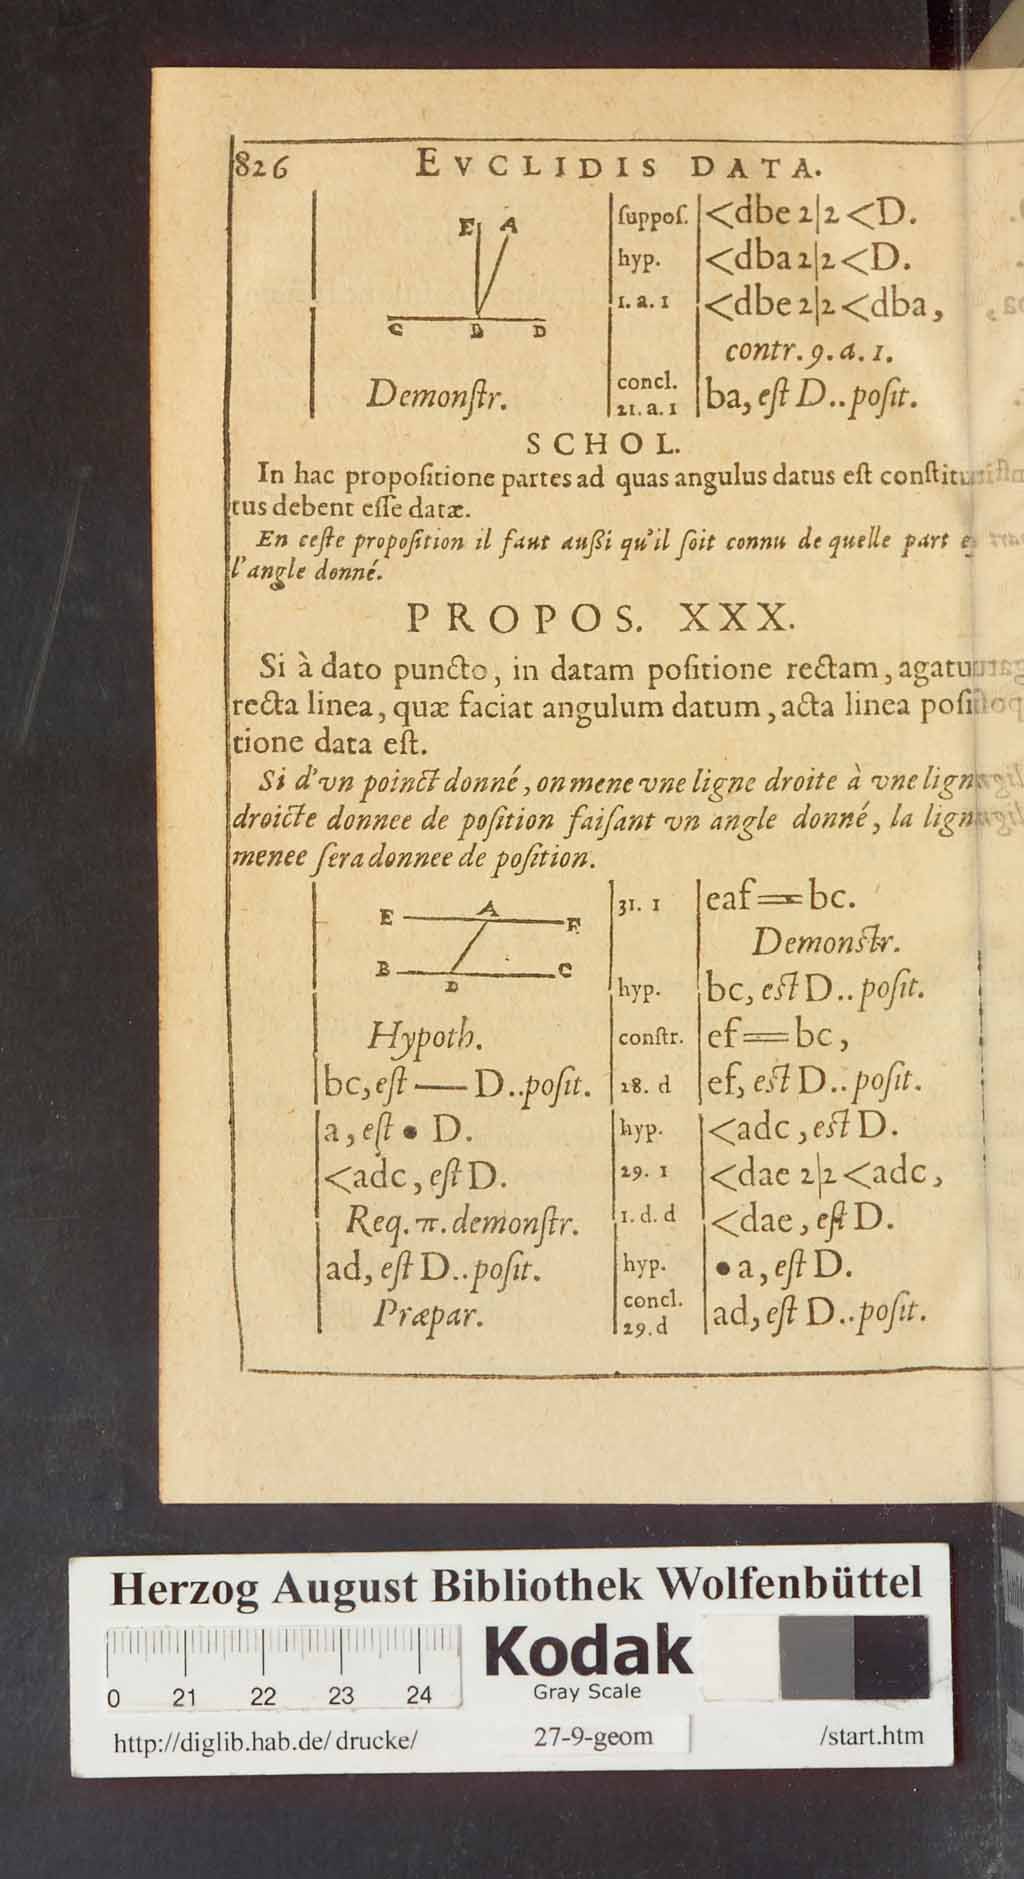 826 EVCLIDIS DATA.
E A
C B D
Demonſtr.
ſuppoſ. <dbe 2|2 <D.
hyp. <dba 2|2 <D.
1. a. 1 <dbe 2|2 <dba,
contr. 9. a. 1.
concl. 21. a. 1 ba, eſt D..poſit.
SCHOL.
In hac propoſitione partes ad quas angulus datus eſt conſtitu
tus debent eſſe datæ.
En ceſte propoſition il faut außi qu'il ſoit connu de quelle part
l'angle donné.
PROPOS. XXX.
Si à dato puncto, in datam poſitione rectam, agatu
recta linea, quæ faciat angulum datum, acta linea poſi
tione data eſt.
Si d'vn poinct donné, on mene vne ligne droite à vne lign
droicte donnee de poſition faiſant vn angle donné, la lign
menee ſera donnee de poſition.
E A F
B D C
Hypoth.
bc, eſt — D..poſit.
a, eſt • D.
<adc, eſt D.
Req. π. demonſtr.
ad, eſt D..poſit.
Præpar.
31. 1 eaf == bc.
Demonſtr.
hyp. bc, eſt D..poſit.
conſtr. ef == bc,
28. d ef, eſt D..poſit.
hyp. <adc, eſt D.
29. 1 <dae 2|2 <adc,
1. d. d <dae, eſt D.
hyp. • a, eſt D.
concl. 29. d ad, eſt D..poſit.
Herzog August Bibliothek Wolfenbüttel
0 21 22 23 24
Kodak
Gray Scale
http://diglib.hab.de/drucke/ 27-9-geom /start.htm